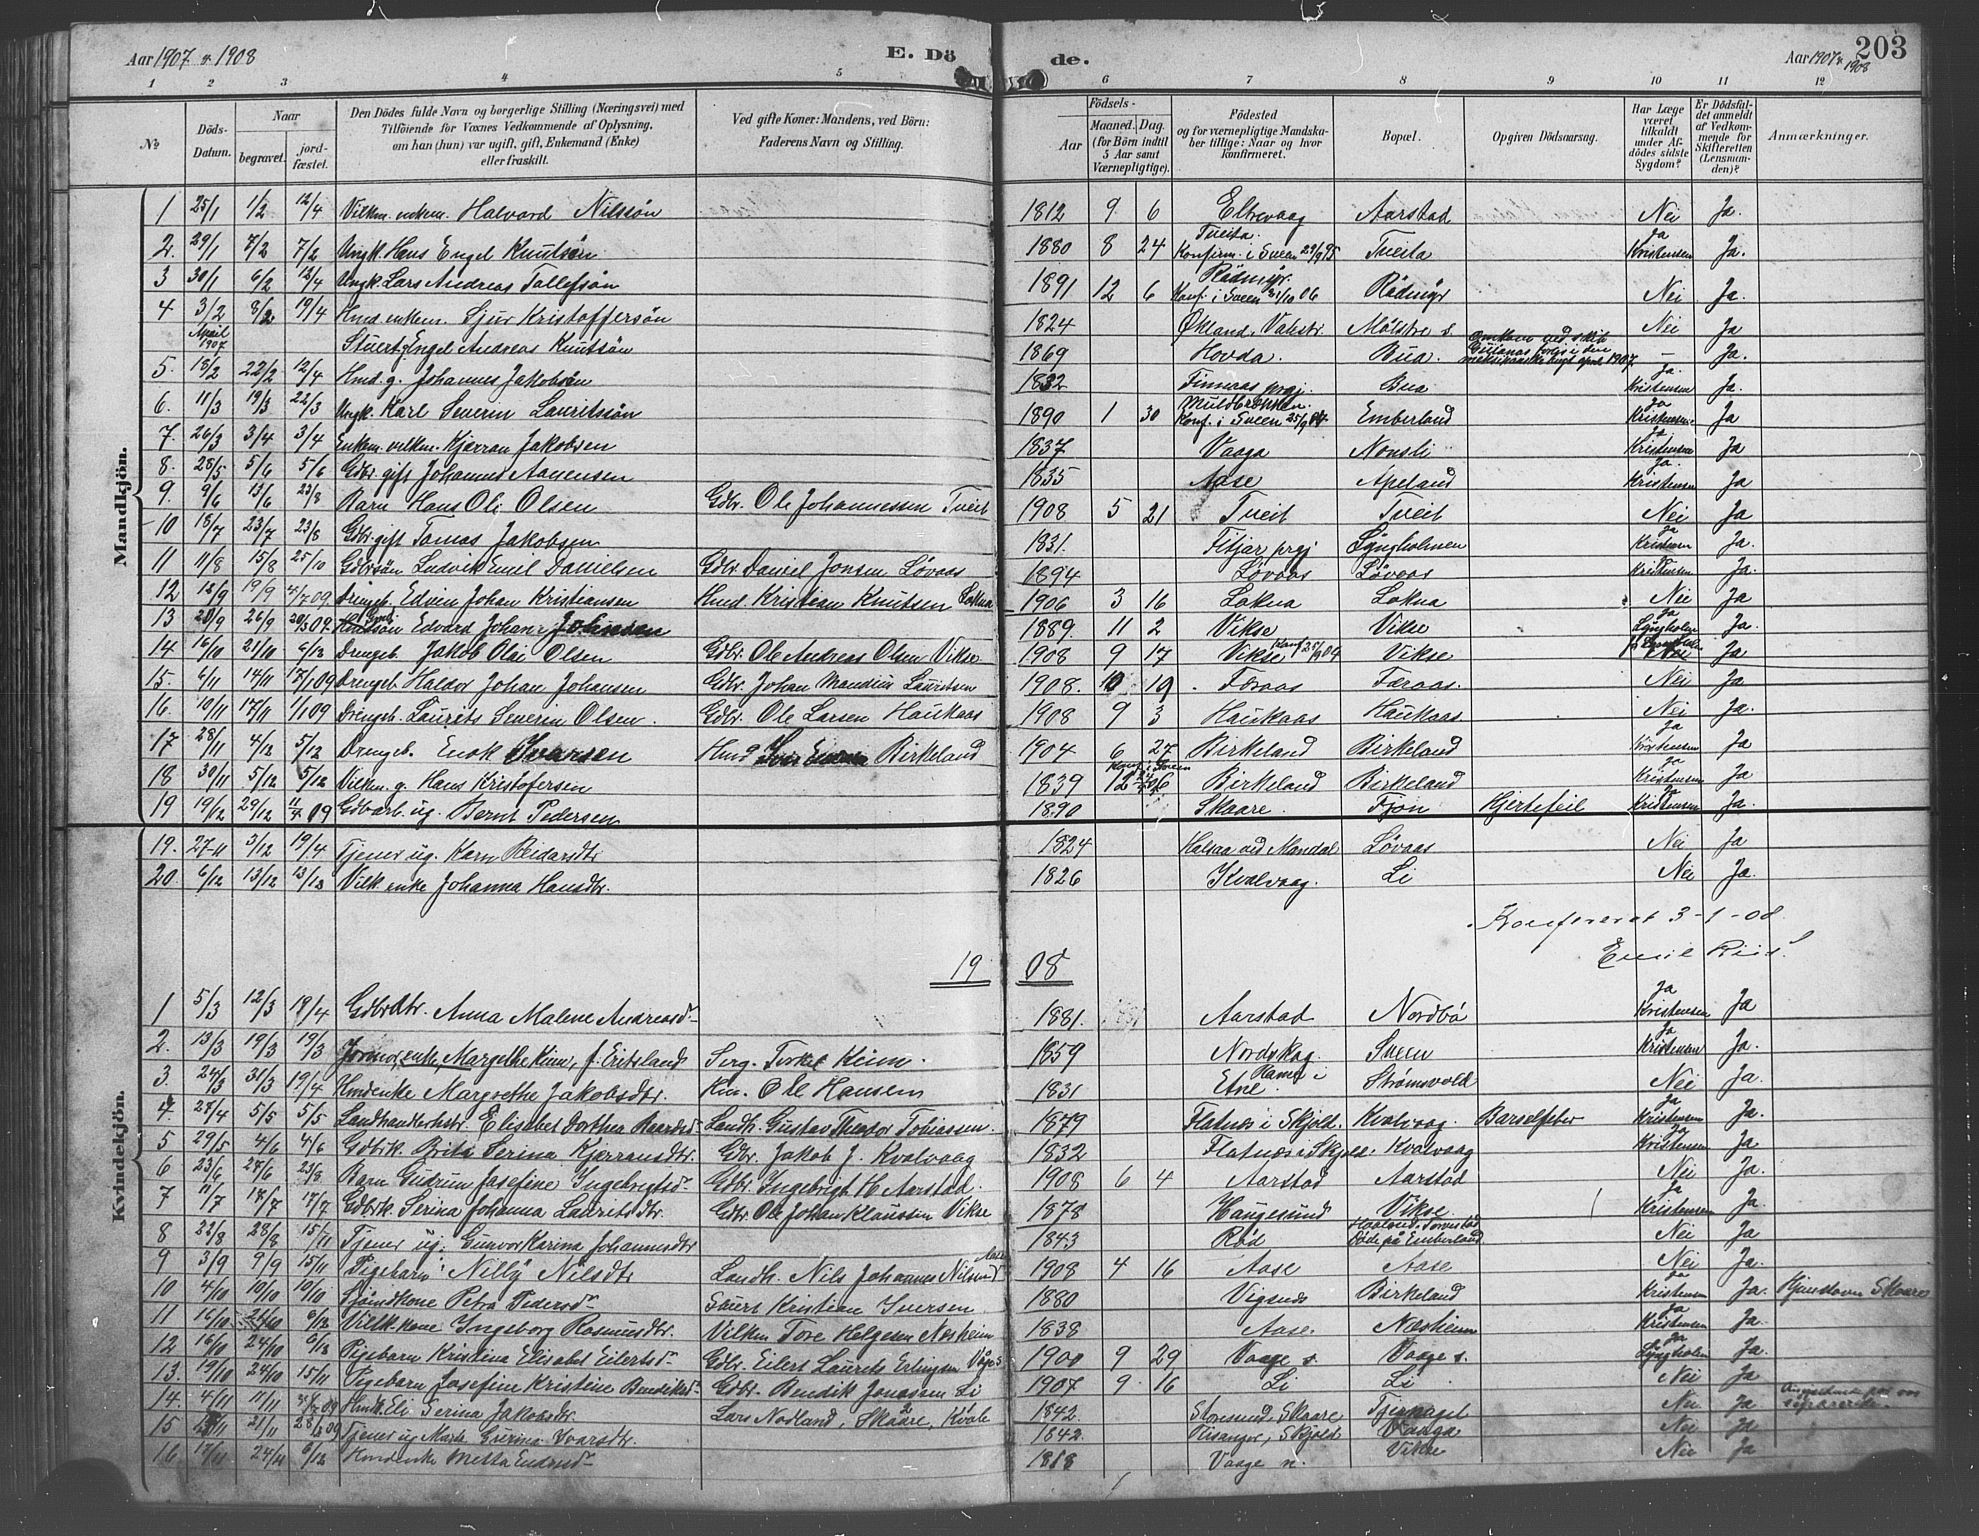 Aar 1907 & 1908
E. Dö
de.
Aar 1907 & 1908
203
1 2 3 4 5 6 7 8 9 10 11 12
№
Döds-Datum.
Naar
begravet.
jord-fæstet.
Den Dödes fulde Navn og borgerlige Stilling (Næringsvei) med Tilföiende for Voxnes Vedkommende af Oplysning, om han (hun) var ugift, gift, Enkemand (Enke) eller fraskilt.
Ved gifte Koner: Mandens, ved Börn: Faderens Navn og Stilling.
Födsels-
Aar
Maaned. Dag.
(for Börn indtil 5 Aar samt Værnepligtige).
Födested og for værnepligtige Mandskaber tillige: Naar og hvor konfirmeret.
Bopæl.
Opgiven Dödsaarsag.
Har Læge været tilkaldt under Afdödes sidste Sygdom?
Er Dödsfaldet anmeldt af Vedkommende for Skifteretten (Lensmanden)?
Anmærkninger.
Mandkjön.
1 25/1 1/2 12/4 Vilkm. enkem. Halvard Nilssön 1812 9 6 Eltrevaag Aarstad Nei Ja.
2. 29/1 7/2 7/2 Ungk. Hans Engel Knutsön 1880 8 24 Tveita. Konfirm. i Sveen 29/9 95 Tveita Ja Kristensen Ja.
3 30/1 6/2 12/4 Ungk. Lars Andreas Tollefsön 1891 12 6 Rödmyr. Konf. i Sveen 21/10 06 Rödmyr Nei Ja.
4 3/2 8/2 19/4 Hmd. enkem. Sjur Kristoffersön 1824 Økland, Valestr. Mölstre s. Nei Ja
April 1907 Stuert Engel Andreas Knutsön 1869 Hovda. Bua. Omkom ved skib forlis i den april 1907. – Ja.
5. 18/2 22/2 12/4 Hmd. g. Johannes Jakobsön 1832 Finnaas prgj. Bua Ja. Kristensen Ja.
6. 11/3 19/3 22/3 Ungk. Karl Severin Lauritsön 1890 1 30 Konf. i Sveen 25/9 04 Emberland Ja Kristensen Ja
7. 26/3 3/4 3/4 Enkem. vilkm. Kjærran Jakobsen 1837 Vaaga Nonsli Ja Kristensen Ja
8. 28/5 5/6 5/6 Gdbr. gift Johannes Aanensen 1835 Aase Apeland Ja. Kristensen Ja
9. 9/6 13/6 23/8 Barn Hans Oli Olsen Gdbr. Ole Johannessen Tveit 1908 5 21 Tveit Tveit Nei Ja
10 18/7 23/7 23/8 Gdbr. gift Tomas Jakobsen 1831. Fitjar prgj Lyngholmen Ja Kristensen Ja.
11 11/8 15/8 25/10 Gdbrsön Ludvik Emel Danielsen Gdbr. Daniel Jonsen Løvaas 1894 Løvaas Løvaas Kristensen Ja.
12 12/9 19/9 4/7 09 Drengeb. Edvin Johan Kristiansen Hmd. Kristian Knutsen Lokna 1906 3 16 Lokna Lokna Nei Ja
13 20/9 26/9 20/3 09. Edvard Johan Johnsen 1889. 11 2 Vikse Vikse Ja Lyngholm Ja.
14 16/10 21/10 6/12 Drengeb. Jakob Olai Olsen Gdbr. Ole Andreas Olsen Vikse 1908 9 17 Vikse Konf. 2/9 04 Vikse Nei Ja
15. 6/11 14/11 17/1 09 Drengeb. Haldor Johan Johansen Gdbr. Johan Mandius Lauritsen 1908. 10 19 Færaas Færaas. Nei Ja
16. 10/11 17/11 1/1 09 Drengeb. Laurits Severin Olsen. Gdbr. Ole Larsen Haukaas 1908 9 3 Haukaas Haukaas Nei Ja.
17 28/11 4/12 5/12 Drengeb. Enok Iversen Hmd Birkeland 1904 6 27 Birkeland Birkeland Ja Kristensen Ja
18 30/11 5/12 5/12 Vilkm. g. Hans Kristofersen 1839 12 Konf. i Sveen Birkeland Birkeland Ja Kristensen Ja
19 19/12 29/12 11/4 09 Gdbarb. ug. Bernt Pedersen 1890 Skaare. Fjon Hjertefeil Ja Kristensen Ja.
19. 27-11 3/12 19/4 Tjener ug. Karn Reidarsdtr 1824 Halsaa ved Mandal Løvaas Nei Ja
20. 6/12 13/12 13/12 Vilk. enke Johanna Hansdtr. 1826 Kvalvaag. Li Nei Ja.
Konfereret 3-1-08.
Emil Riis
19 08
Kvindekjön.
1 5/3 12/3 18/4 Gdbrdtr. Anna Malene Andreasdr 1881. Aarstad Nordbø Ja Kristensen Ja
2. 13/3 19/3 19/3 Jormor, enke, Margethe Kim, f. Eritsland Serg. Torkel Kim. 1859 Nordskog Sveen Ja Kristensen Ja.
3. 24/3 31/3 19/4 Hmdenke Margrethe Jakobsdtr. Hm. Ole Hansen 1831 Etne Strømsvold Nei Ja.
4. 27/4 5/5 5/5 Landhandlerhstr. Elisabet Dorthea Landh. Gustav Theodor Tobiassen. 1879 Flatnes i Skjold. Kvalvaag. Barselfeber Ja Kristensen Ja.
5 29/5 4/6 4/6 Gdbrk. Brita Serina Kjerransdtr. Gdbr. Jakob J. Kvalvaag 1832 Flatnæs i Skjold. Kvalvaag Ja Kristensen Ja
6 23/6 27/6 23/8 Barn Gudrun Josefine Ingebrigtsdr Gdbr. Ingebrigt H. Aarstad. 1908 6 4 Aarstad Aarstad Nei Ja.
7 11/7 17/7 17/7 Gdbrk. Serina Johanna Lauritsdtr. Gdbr. Ole Johan Klaussen Vikse 1878 Haugesund Vikse. Ja Kristensen Ja.
8 22/8 28/8 15/11 Tjener ug. Gunvor Karina Johannesdtr 1843 Rød Døde på Emberland Nei Ja
9 3/9 9/9 15/11 Pigebarn Nilly Nilsdtr Landh. Nils Johannes Nilsen Aase 1908 4 16 Aase Aase Nei Ja.
10 4/10 10/10 10/10 Sjömdkone Petra Pedersdr Stuert Kristian Iversen 1880 Vigsnes Birkeland Ja Kristensen Ja. Skaare
11 16/10 24/10 6/12 Vilkk. kone Ingeborg Rasmusdtr. Vilkm Tore Helgesen Næsheim 1838 Aase. Næsheim Ja Kristensen Ja.
12 16/10 24/10 6/12 Pigebarn Kristina Elisabet Eilertsdr Gdbr. Eilert Laurits Erlingsen Våge s 1900 9 29 Vaage s. Vaage s. Ja Lyngholm Ja
13. 19/10 24/10 15/11 Pigebarn Josefine Kristine Bendiksdr Gdbr. Bendik Jonassen Li 1907 9 16 Li Li Nei Ja
14. 4/11 11/11 Hmdk. Eli Serina Jakobsdtr. Lars Nodland, Skaare, Kvale 1842. Storesund, Skaare Tjernagel Nei Ja
15 21/11 28/3 09 Tjener ug Marte Gurina Ivarsdtr. 1842. Skjold Vaaga Nei Ja
16 17/11 24/11 6/12 Hmdenke Metta Endresdr 1818 Vaage n. Vikse Nei Ja